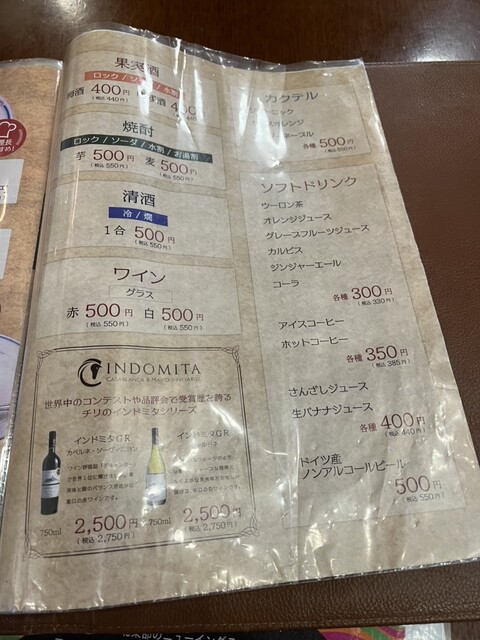 果実酒
ロック / ソーダ / 水割
400円
(税込 440円)
400
焼酎
ロック / ソーダ / 水割 / お湯割
芋 500円
(税込 550円)
麦 500円
(税込 550円)
清酒
冷 / 燗
1合 500円
(税込 550円)
ワイン
グラス
赤 500円
(税込 550円)
白 500円
(税込 550円)
INDOMITA
世界中のコンテストや品評会で受賞歴を誇る
チリのインドミタシリーズ
インドミタGR
カベルネ・ソーヴィニヨン
750ml
2,500円
(税込 2,750円)
インドミタGR
750ml
2,500円
(税込 2,750円)
カクテル
各種 500円
(税込 550円)
ソフトドリンク
ウーロン茶
オレンジジュース
グレープフルーツジュース
カルピス
ジンジャーエール
コーラ
各種 300円
(税込 330円)
アイスコーヒー
ホットコーヒー
各種 350円
(税込 385円)
さんざしジュース
生バナナジュース
各種 400円
(税込 440円)
ドイツ産
ノンアルコールビール
500円
(税込 550円)